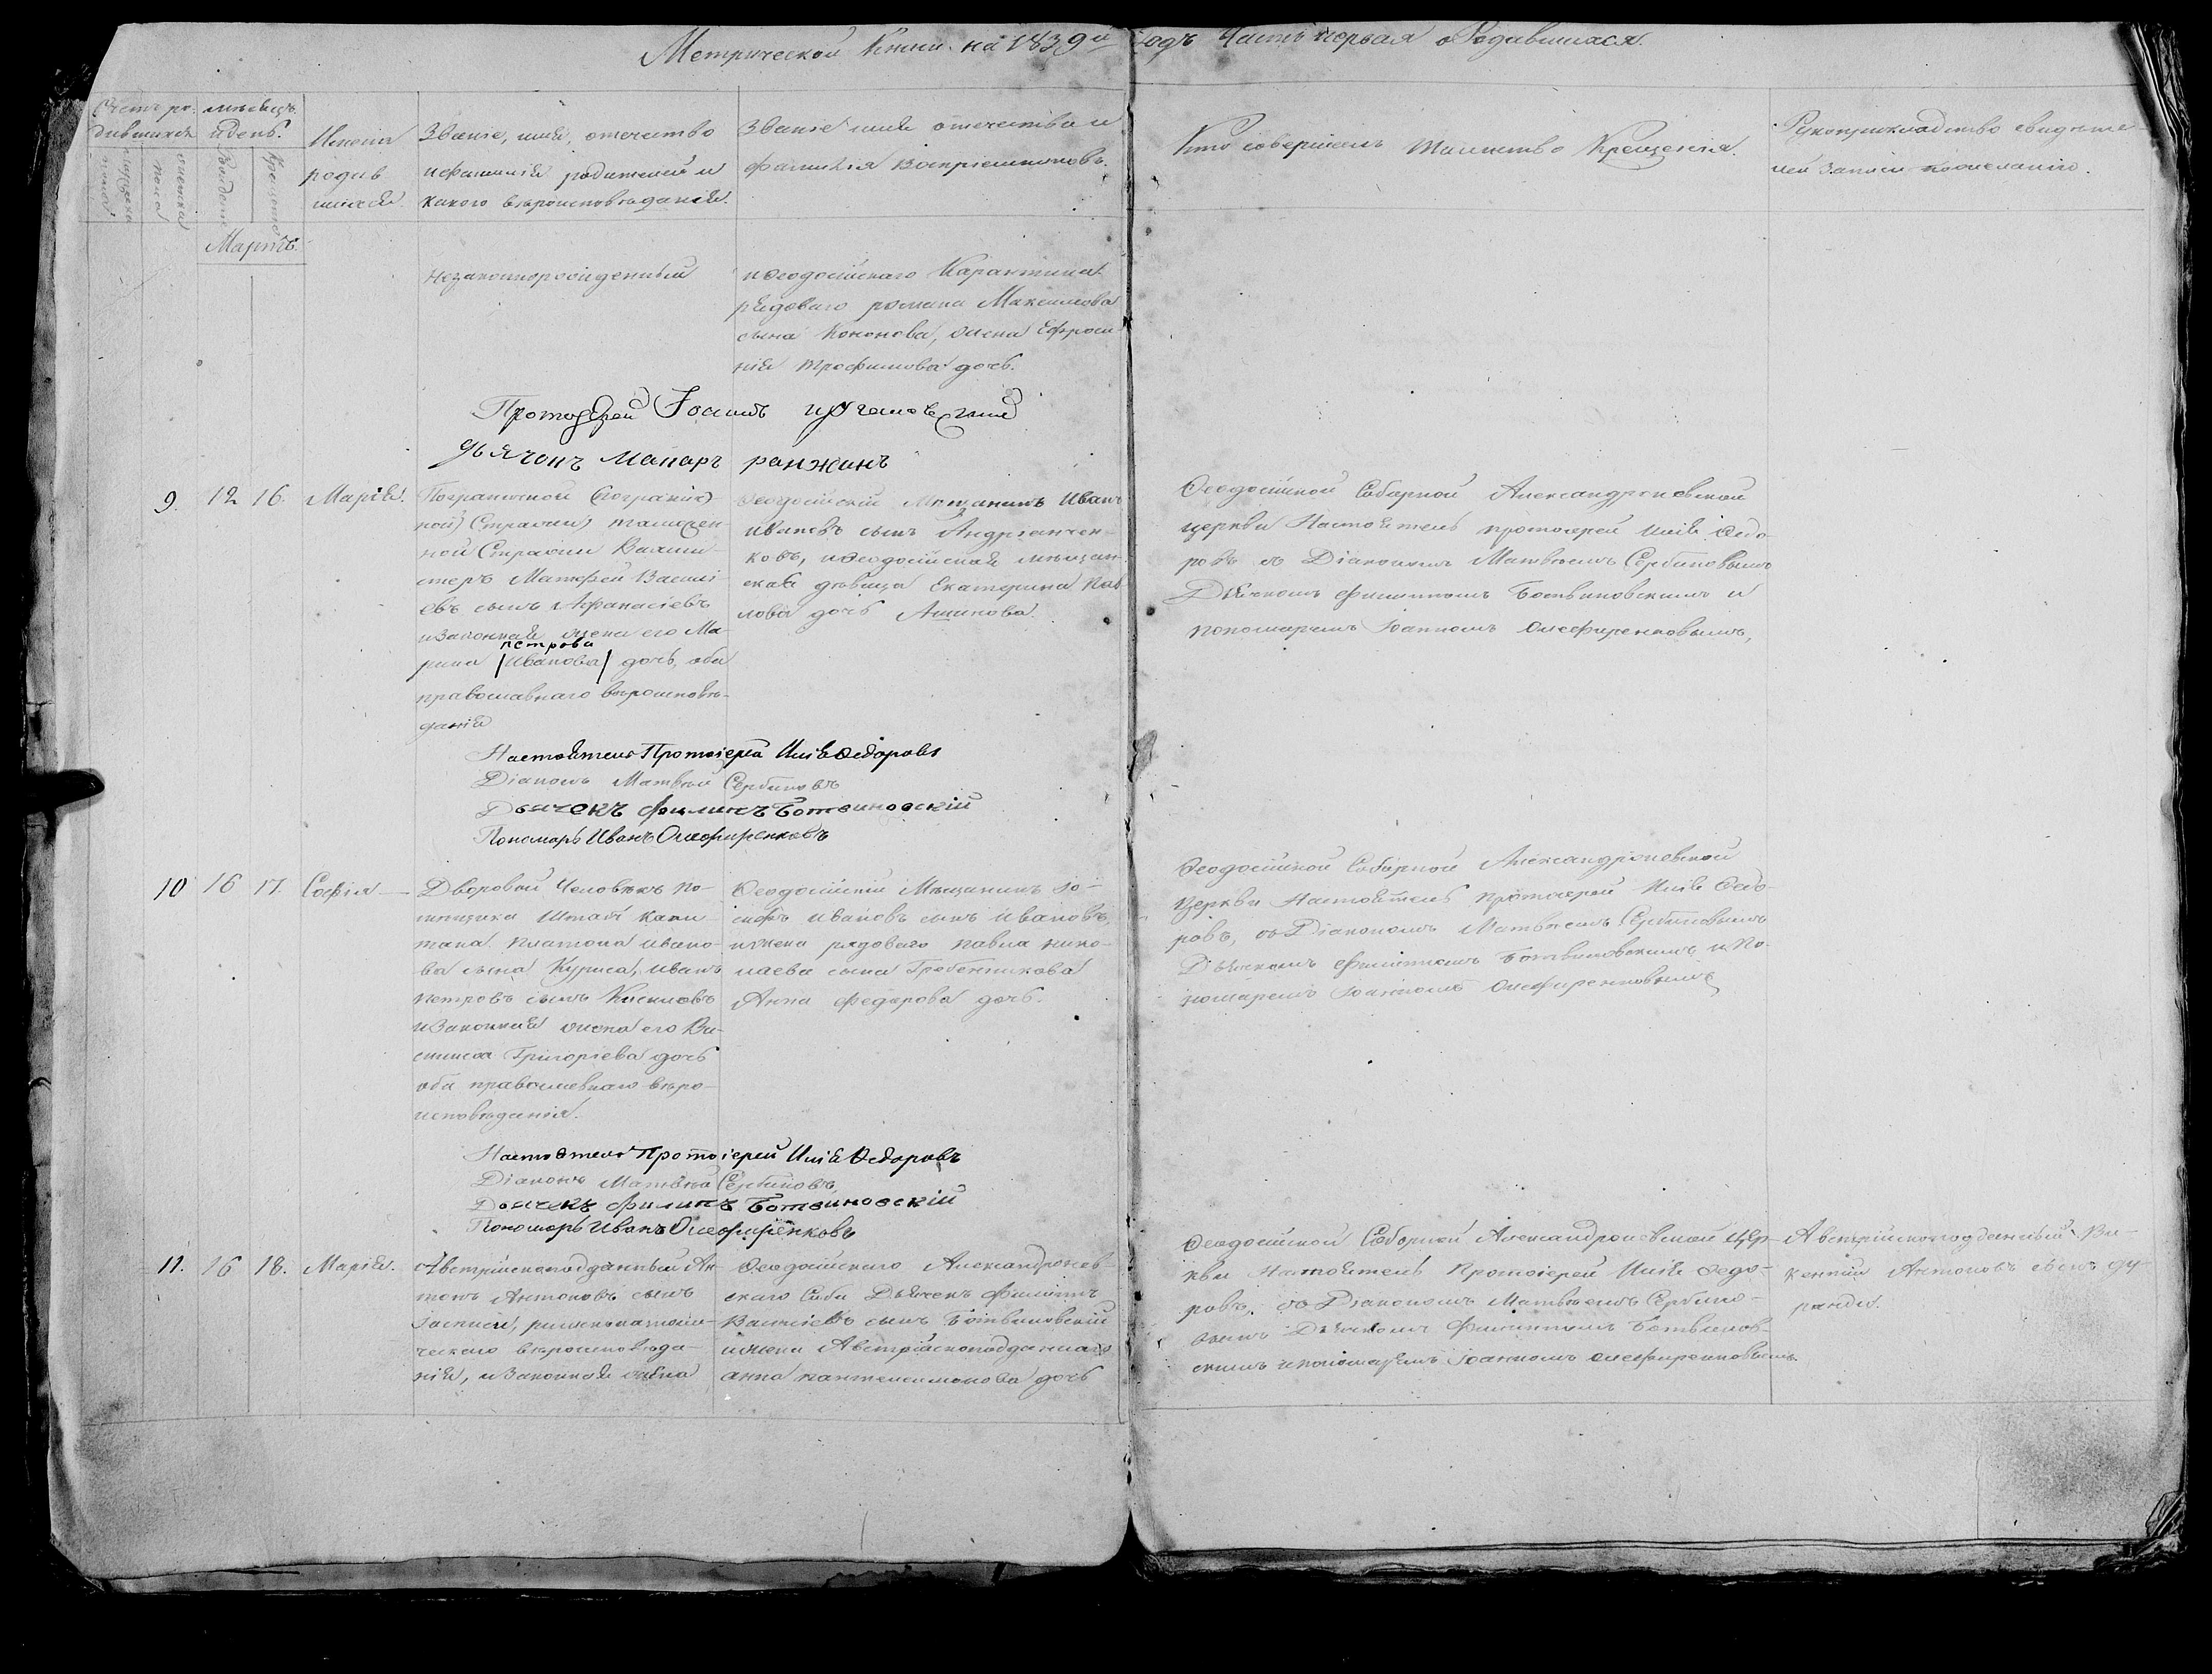 Метрической Книги на 1839й годъ Часть первая о Родившихся.
Счетъ ро-
дившихся
мужеска
пола
женска
пола
мѣсяцъ
и день.
Рождения
Крещения
Имена
родив
шихся
Званіе, имя, отчество
и фамилія родителей и
какого вѣроисповѣданія.
Званіе имя отечество и
фамилія Воспріемниковъ.
Кто совершалъ Таинство Крещенія.
Рукоприкладство свидѣте-
лей записи по желанію.
Мартъ.
незаконнорожденный
и Феодосійскаго Карантина
рядоваго романа Максимова
сына Кононова, жена Ефроси
нія Трофимова дочь.
Протоіерей Іоаннъ
дьячокъ Макаръ
9. 12 16. Марія.
Пограничной (пограни)
ной) Стражи таможен-
ной Стражи Вахми-
стеръ Матфей Василі
евъ сынъ Афанасіевъ
и законная жена его Ма-
петрова
рина /Иванова/ дочь, оба
православнаго вѣроисповѣ-
данія
Феодосійскій Мещанинъ Иванъ
Ивановъ сынъ Андріанчен-
ковъ, и Феодосійская мѣщан-
ская дѣвица Екатерина Пав
лова дочь Ашикова.
Феодосійской Соборной Александроневской
церкви Настоятель протоіерей Илія Ѳедо-
ровъ съ Діакономъ Матвѣемъ Сербиновымъ
Дьячкомъ Филиппомъ Ботвиновскимъ и
пономаремъ Іоанномъ Олефиренковымъ,
Настоятель Протоіерей Илія Ѳедоровъ
Діаконъ Матвѣй Сербиновъ
Дьячекъ Филипъ Ботвиновскій
Пономарь Иванъ Олефиренковъ
10 16 17. Софія
Дворовой Человѣкъ по-
мѣщика Штабъ Капи-
тана Платона Ивано-
ва сына Куриса, Иванъ
Петровъ сынъ Киселювъ
и законная жена его Ва-
силиса Григоріева дочь
оба православнаго вѣро-
исповѣданія.
Феодосійскій Мѣщанинъ Іо-
сифъ Ивановъ сынъ Ивановъ,
и жена рядоваго Павла Нико-
лаева сына Гребенникова
Анна Федорова дочь.
Феодосійской Соборной Александроневской
Церкви Настоятель протоіерей Илія Ѳедо-
ровъ, съ Діакономъ Матвѣемъ Сербиновымъ
Дьячкомъ Филиппомъ Ботвиновскимъ и По-
номаремъ Іоанномъ Олефиренковымъ
Настоятель Протоіерей Илія Ѳедоровъ
Діаконъ Матвѣй Сербиновъ
Дьячекъ Филипъ Ботвиновскій
Пономарь Иванъ Олефиренковъ
11. 16 18. Марія.
Австрійскоподданный Ан-
тонъ Антоновъ сынъ
римскокатоли-
ческаго вѣроисповѣда-
нія, и законная жена
Феодосійскаго Александронев-
скаго Собо Дьячекъ Филиппъ
Василіевъ сынъ Ботвиновскій
и жена Австрійскоподданнаго
анна пантелеимонова дочь
Феодосійской Соборной Александроневской Цер-
кви Настоятель Протоіерей Илія Ѳедо-
ровъ. съ Діакономъ Матвѣемъ Сербино-
вымъ Дьячкомъ Филиппомъ Ботвинов-
скимъ и пономаремъ Іоанномъ олефиренковымъ.
Австрійскоподданный Ви-
кентій Антоновъ сынъ Ду-
ранди.